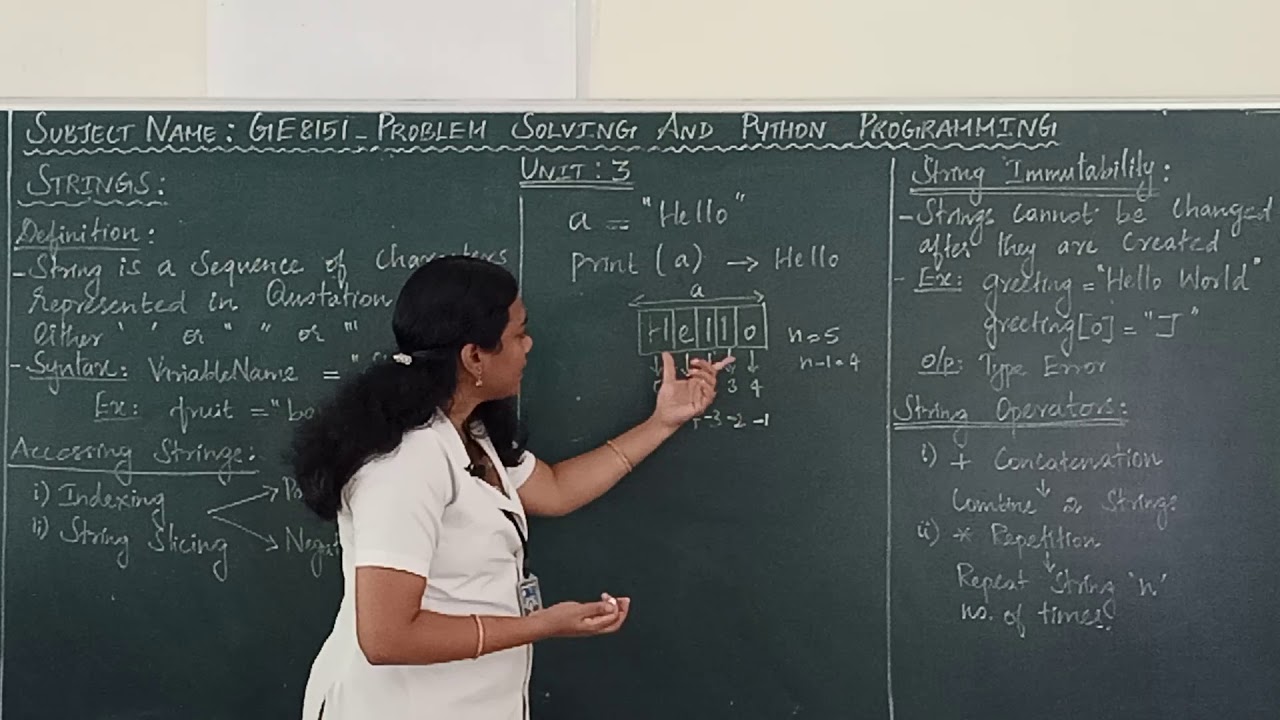 SUBJECT NAME: GE8151_PROBLEM SOLVING AND PYTHON PROGRAMMING
STRINGS:
Definition:
- String is a Sequence of Characters
represented in Quotation
Either ' ' or " " or '''
- Syntax: VariableName = "
Ex: fruit = "ba
Accessing Strings:
i) Indexing
ii) String Slicing
UNIT: 3
a = "Hello"
print (a) → Hello
a
H e l l o
n=5
n-1=4
3 4
-3 -2 -1
String Immutability:
- Strings cannot be changed
after they are created
- Ex: greeting = "Hello World"
greeting[0] = "J"
o/p: Type Error
String Operators:
i) + Concatenation
↓
Combine 2 Strings
ii) * Repetition
↓
Repeat String 'n'
no. of times.